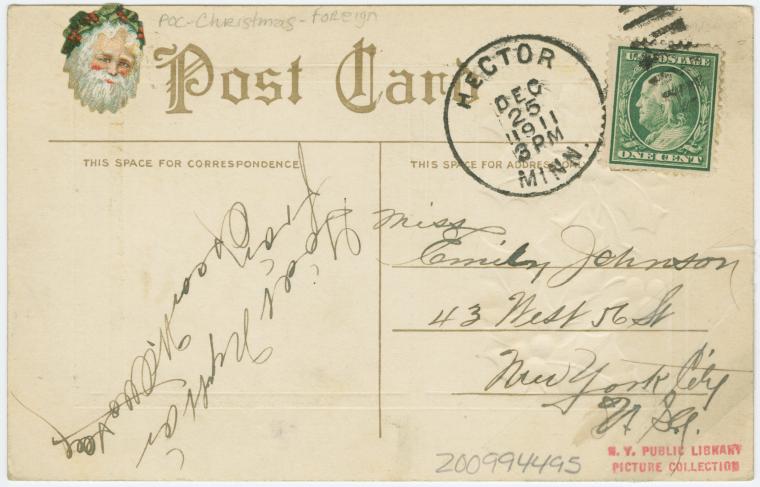 POC-Christmas-foreign
Post Card
HECTOR
DEC
25
1911
3 PM
MINN.
U.S. POSTAGE
ONE CENT
THIS SPACE FOR CORRESPONDENCE
THIS SPACE FOR ADDRESS ON
from
Miss
Emily Johnson
43 West 56 St
New York City
200994495
N. Y. PUBLIC LIBRARY
PICTURE COLLECTION